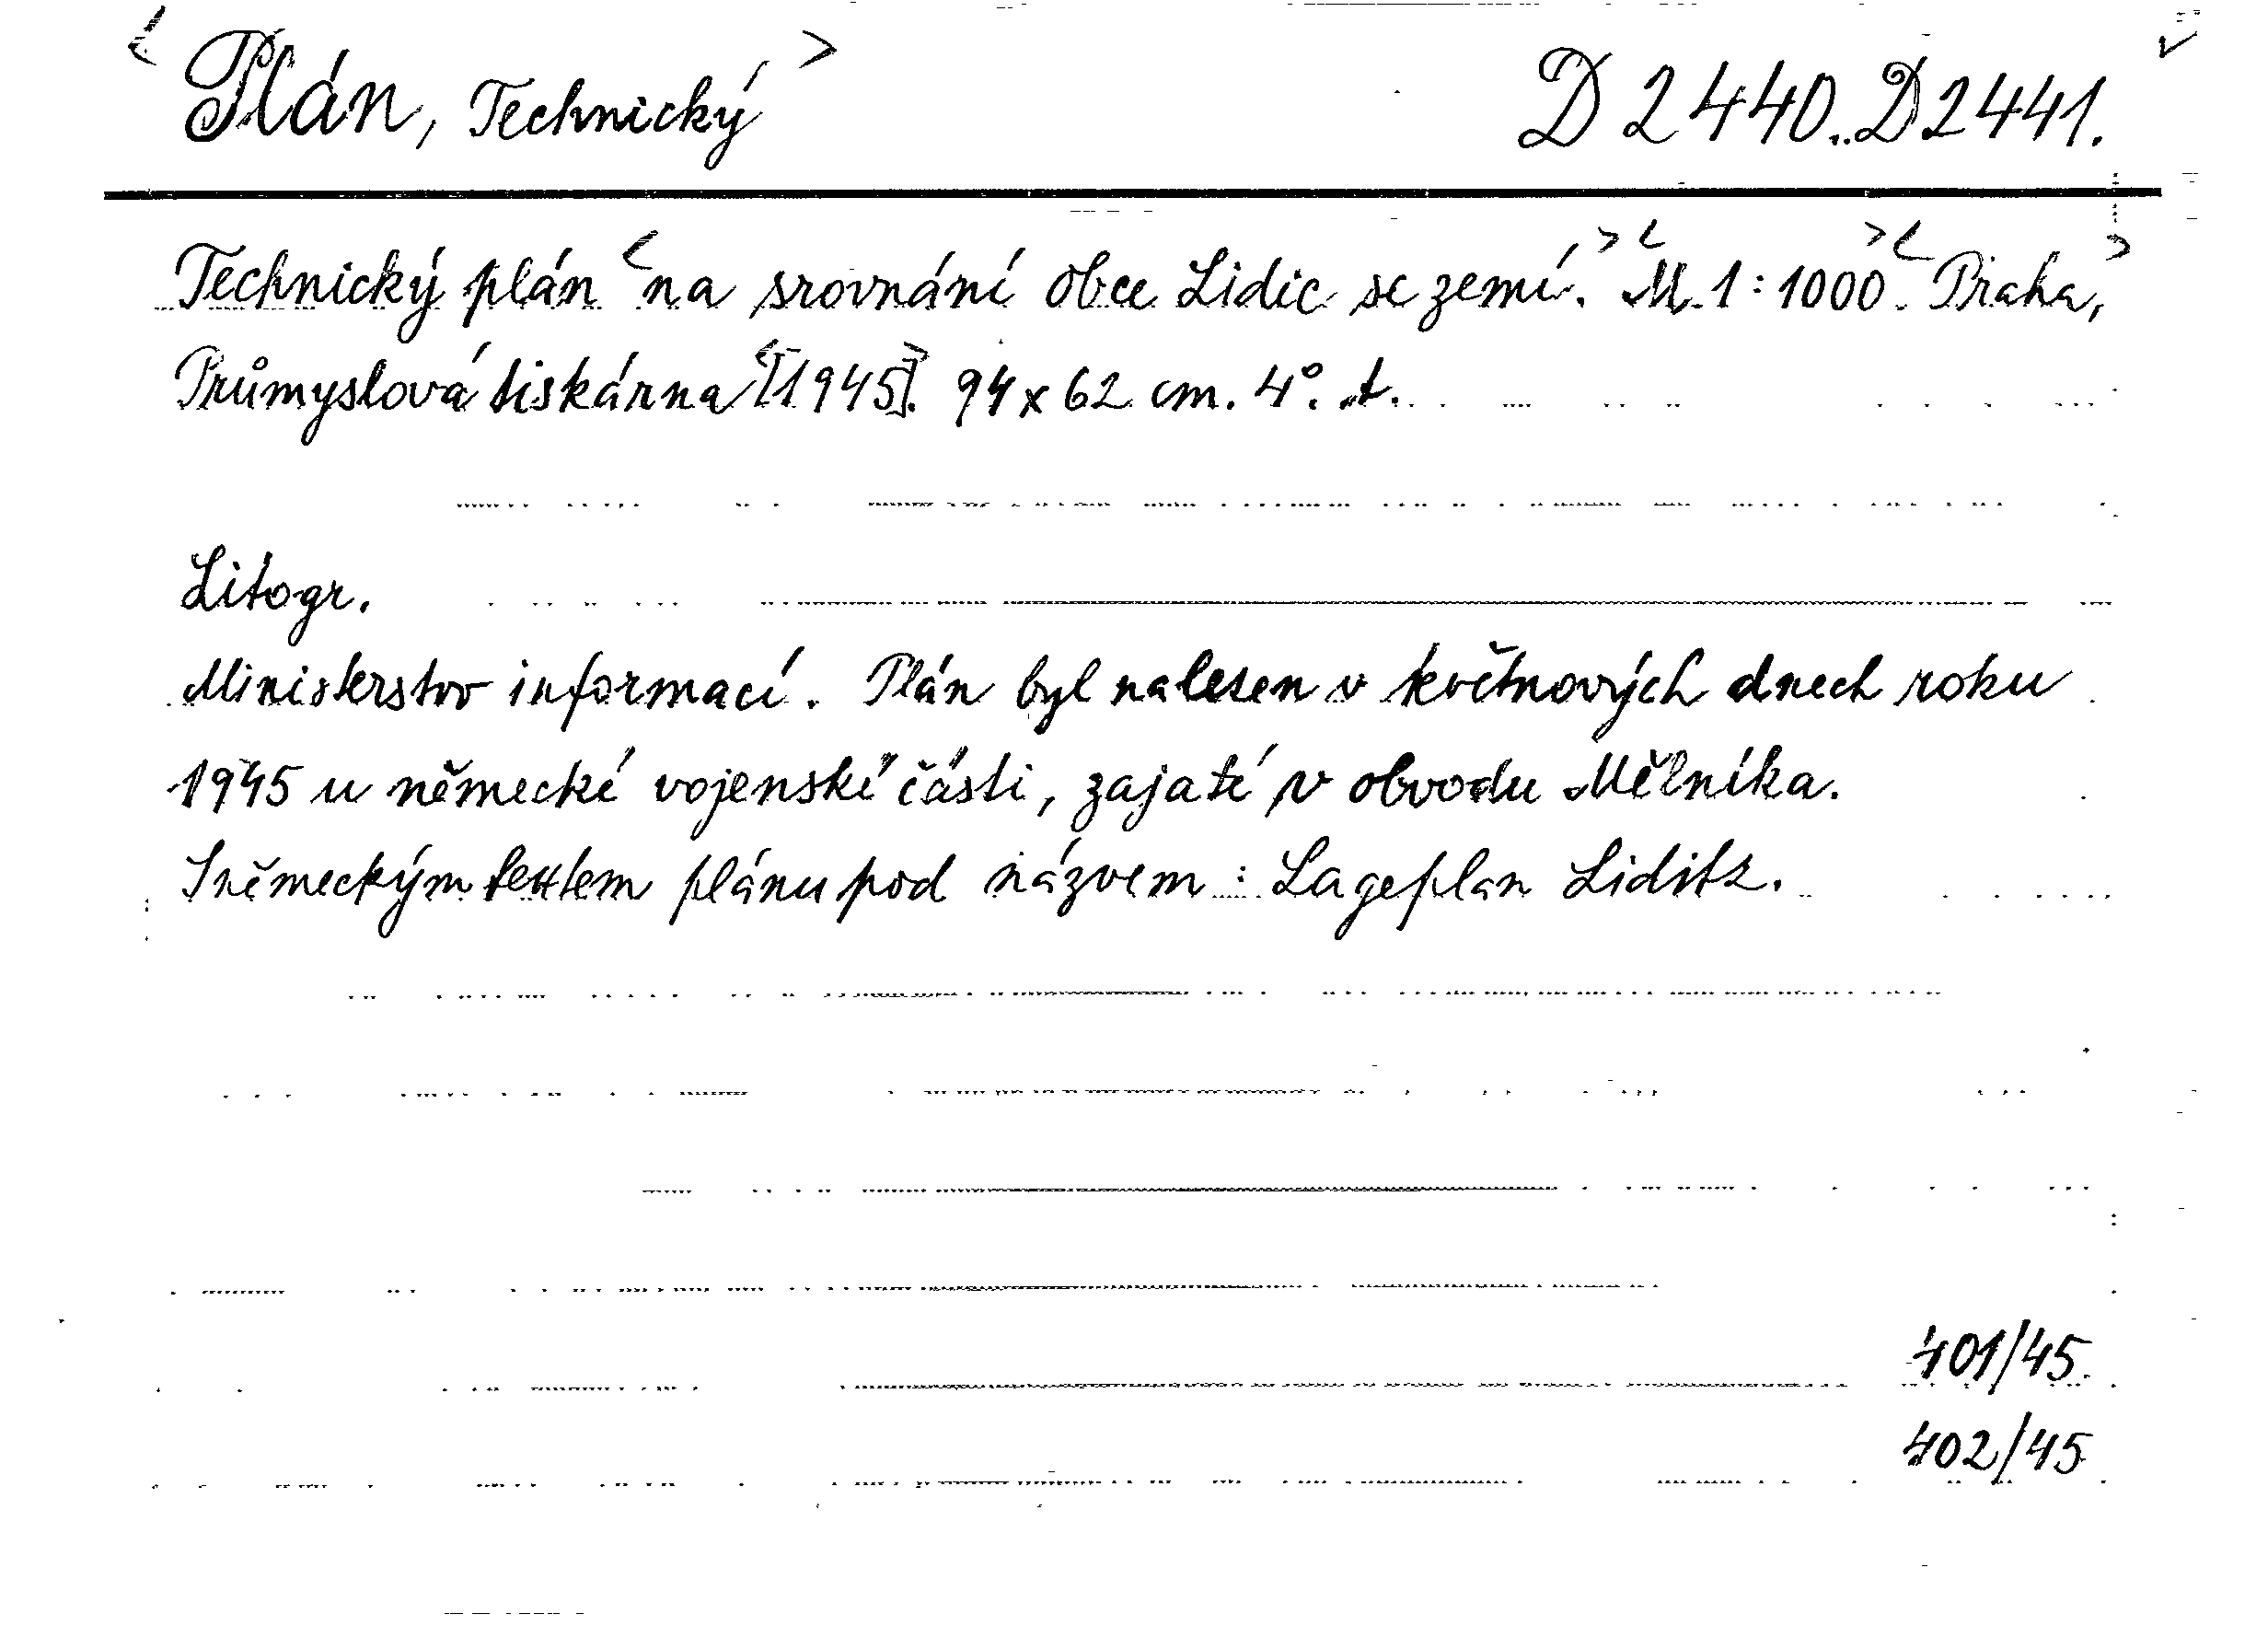 < Plán, Technický > D 2440..D2441.
Technický plán <na srovnání obce Lidic se zemí.> <M. 1:1000.> <Praha,>
Průmyslová tiskárna <[1945].> 94 x 62 cm. 4°. t.
Litogr.
Ministerstvo informací. Plán byl nalezen v květnových dnech roku
1945 u německé vojenské části, zajaté v obvodu Mělníka.
S německým textem plánu pod názvem: Lageplan Liditz.
401/45.
402/45